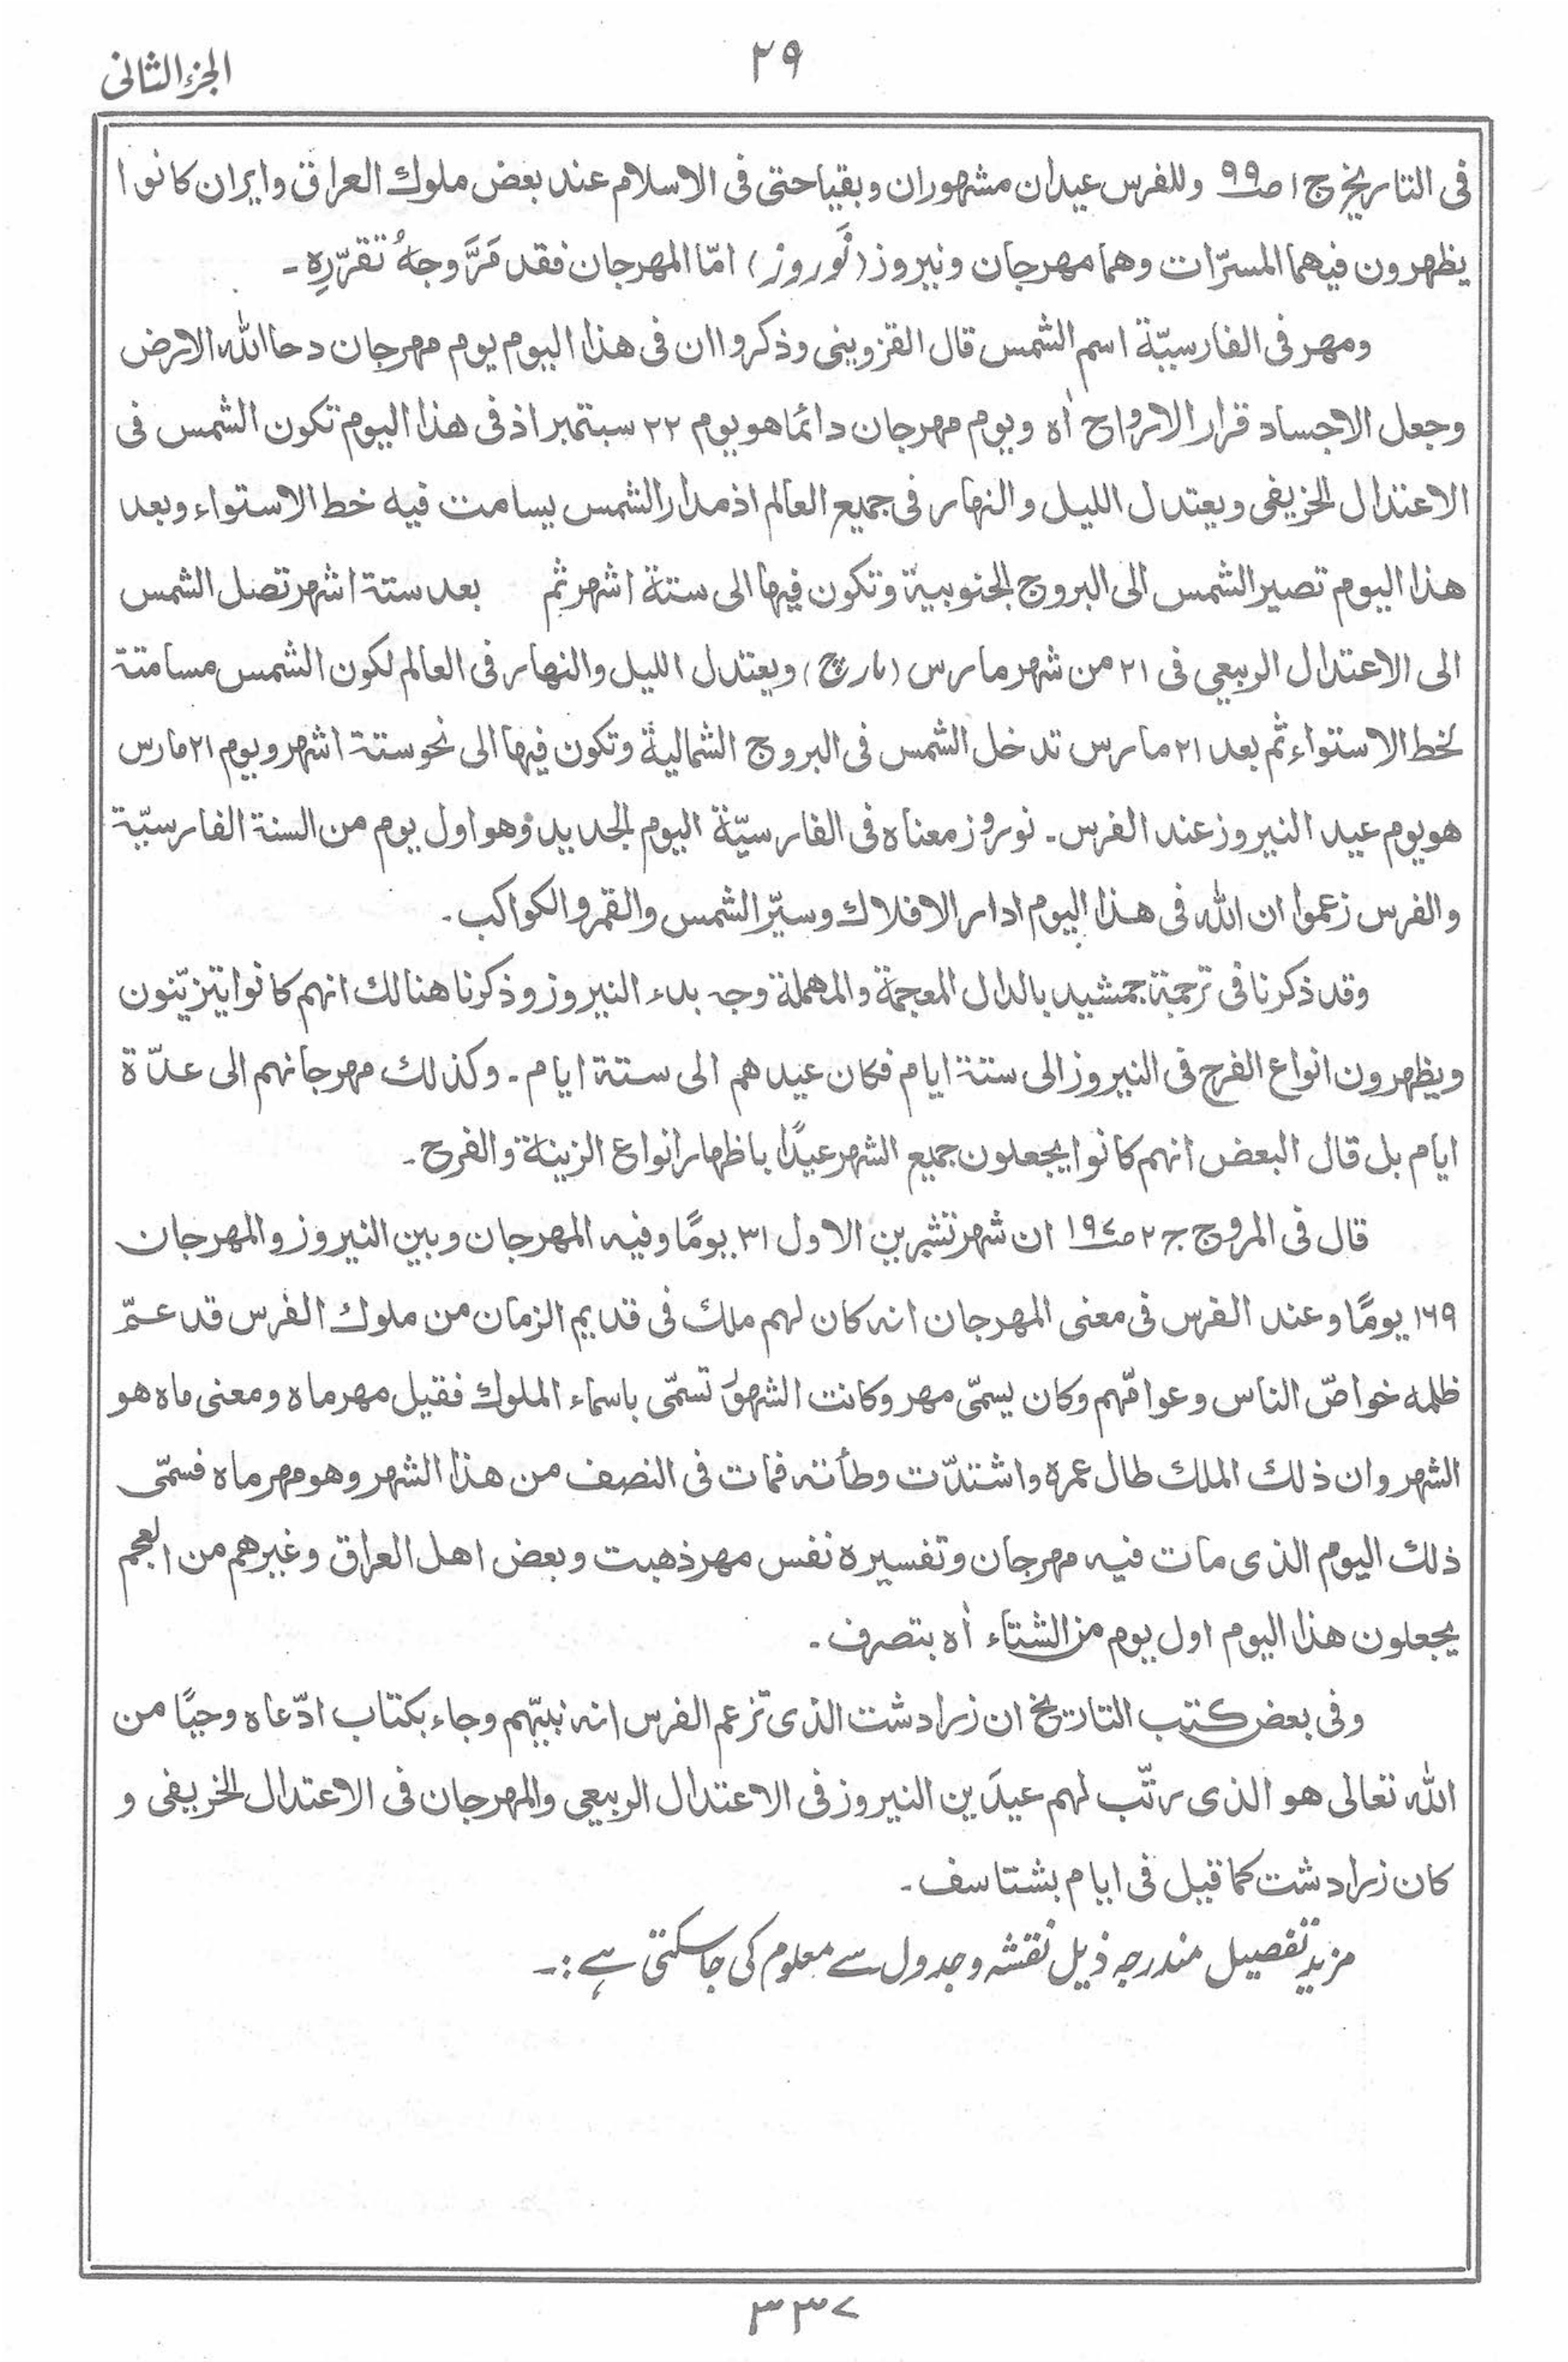 ٢٩
الجزء الثانى
فى التاريخ ج١ ص٩٩ وللفرس عيدان مشهوران وبقيا حتى فى الاسلام عند بعض ملوك العراق وايران كانوا
يظهرون فيهما المسرّات وهما مهرجان ونيروز (نَوروز) امّا المهرجان فقد مَرَّ وجهُ تقرّرِه ۔
ومهر فى الفارسيّة اسم الشمس قال القزوينى وذكروا ان فى هذا اليوم يوم مهرجان دحا الله الارض
وجعل الاجساد قرار الارواح اٰه ويوم مهرجان دائما هو يوم ٢٢ سبتمبر اذ فى هذا اليوم تكون الشمس فى
الاعتدال الخريفى ويعتدل الليل والنهار فى جميع العالم اذ مدار الشمس يسامت فيه خط الاستواء وبعد
هذا اليوم تصير الشمس الى البروج الجنوبية وتكون فيها الى ستة اشهر ثم بعد ستة اشهر تصل الشمس
الى الاعتدال الربيعي فى ٢١ من شهر مارس (مارچ) ويعتدل الليل والنهار فى العالم لكون الشمس مسامتة
لخط الاستواء ثم بعد ٢١ مارس تدخل الشمس فى البروج الشمالية وتكون فيها الى نحو ستة اشهر ويوم ٢١ مارس
هو يوم عيد النيروز عند الفرس ۔ نوروز معناه فى الفارسيّة اليوم الجديد وهو اول يوم من السنة الفارسيّة
والفرس زعموا ان الله فى هذا اليوم ادار الافلاك وسيّر الشمس والقمر والكواكب ۔
وقد ذكرنا فى ترجمة جمشيد بالدال المعجمة والمهملة وجه بدء النيروز وذكرنا هنالك انهم كانوا يتزيّنون
ويظهرون انواع الفرح فى النيروز الى ستة ايام فكان عيدهم الى ستة ايام ۔ وكذلك مهرجانهم الى عدّة
ايام بل قال البعض انهم كانوا يجعلون جميع الشهر عيدًا باظهار انواع الزينة والفرح ۔
قال فى المروج ج٢ ص١٩٤ ان شهر تشرين الاول ٣١ يومًا وفيه المهرجان وبين النيروز والمهرجان
١٦٩ يومًا وعند الفرس فى معنى المهرجان انه كان لهم ملك فى قديم الزمان من ملوك الفرس قد عمّ
ظلمه خواصّ الناس وعوامّهم وكان يسمّى مهر وكانت الشهور تسمّى باسماء الملوك فقيل مهرماه ومعنى ماه هو
الشهر وان ذلك الملك طال عمره واشتدّت وطأته فمات فى النصف من هذا الشهر وهو مهرماه فسمّى
ذلك اليوم الذى مات فيه مهرجان وتفسيره نفس مهر ذهبت وبعض اهل العراق وغيرهم من العجم
يجعلون هذا اليوم اول يوم من الشتاء اٰه بتصرف ۔
وفى بعض كتب التاريخ ان زرادشت الذى تزعم الفرس انه نبيّهم وجاء بكتاب ادّعاه وحيًا من
الله تعالى هو الذى رتّب لهم عيدَين النيروز فى الاعتدال الربيعي والمهرجان فى الاعتدال الخريفى و
كان زرادشت كما قيل فى ايام بشتاسف ۔
مزید تفصیل مندرجہ ذیل نقشہ وجدول سے معلوم کی جا سکتی ہے :۔
٣٣٧